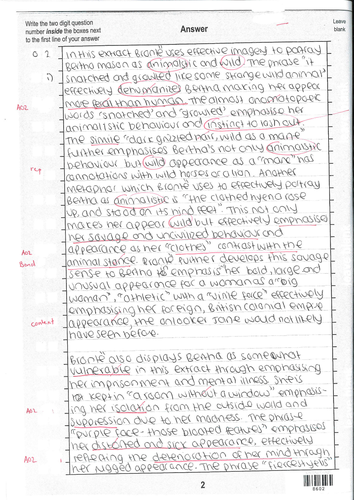 Write the two digit question
number inside the boxes next
to the first line of your answer
Answer
Leave
blank
0 2
i)
In this extract Brontë uses effective imagery to portray
Bertha mason as animalistic and wild. The phrase "it
snatched and growled like some strange wild animal"
effectively dehumanises Bertha making her appear
more beast than human. The almost onomatopoeic
AO2
words "snatched" and "growled" emphasise her
animalistic behaviour and instinct to lash out.
The simile "dark grizzled hair, wild as a mane"
further emphasises Bertha's not only animalistic
behaviour but wild appearance as a "mane" has
rep
connotations with wild horses or a lion. Another
metaphor which Brontë uses to effectively portray
Bertha as animalistic is "the clothed hyena rose
up, and stood on its hind feet". This not only
makes her appear wild but effectively emphasises
her savage and uncivilized behaviour and
appearance as her "clothes" contrast with the
AO2
animal stance. Brontë further develops this savage
Band
sense to Bertha to emphasis her bold, large and
unusual appearance for a woman as a "big
woman", "athletic" with a "virile force" effectively
emphasising her foreign, British colonial empire
context
appearance, the onlooker Jane would not likely
have seen before.
Brontë also displays Bertha as somewhat
vulnerable in this extract through emphasising
her imprisonment and mental illness. She is
kept in "a room without a window" emphasis-
AO2
ing her isolation from the outside world and
suppression due to her madness. The phrase
"purple face - those bloated features" emphasises
her distorted and sick appearance, effectively
reflecting the deterioration of her mind through
AO2
her rugged appearance. The phrase "fiercest yells"
2
6602